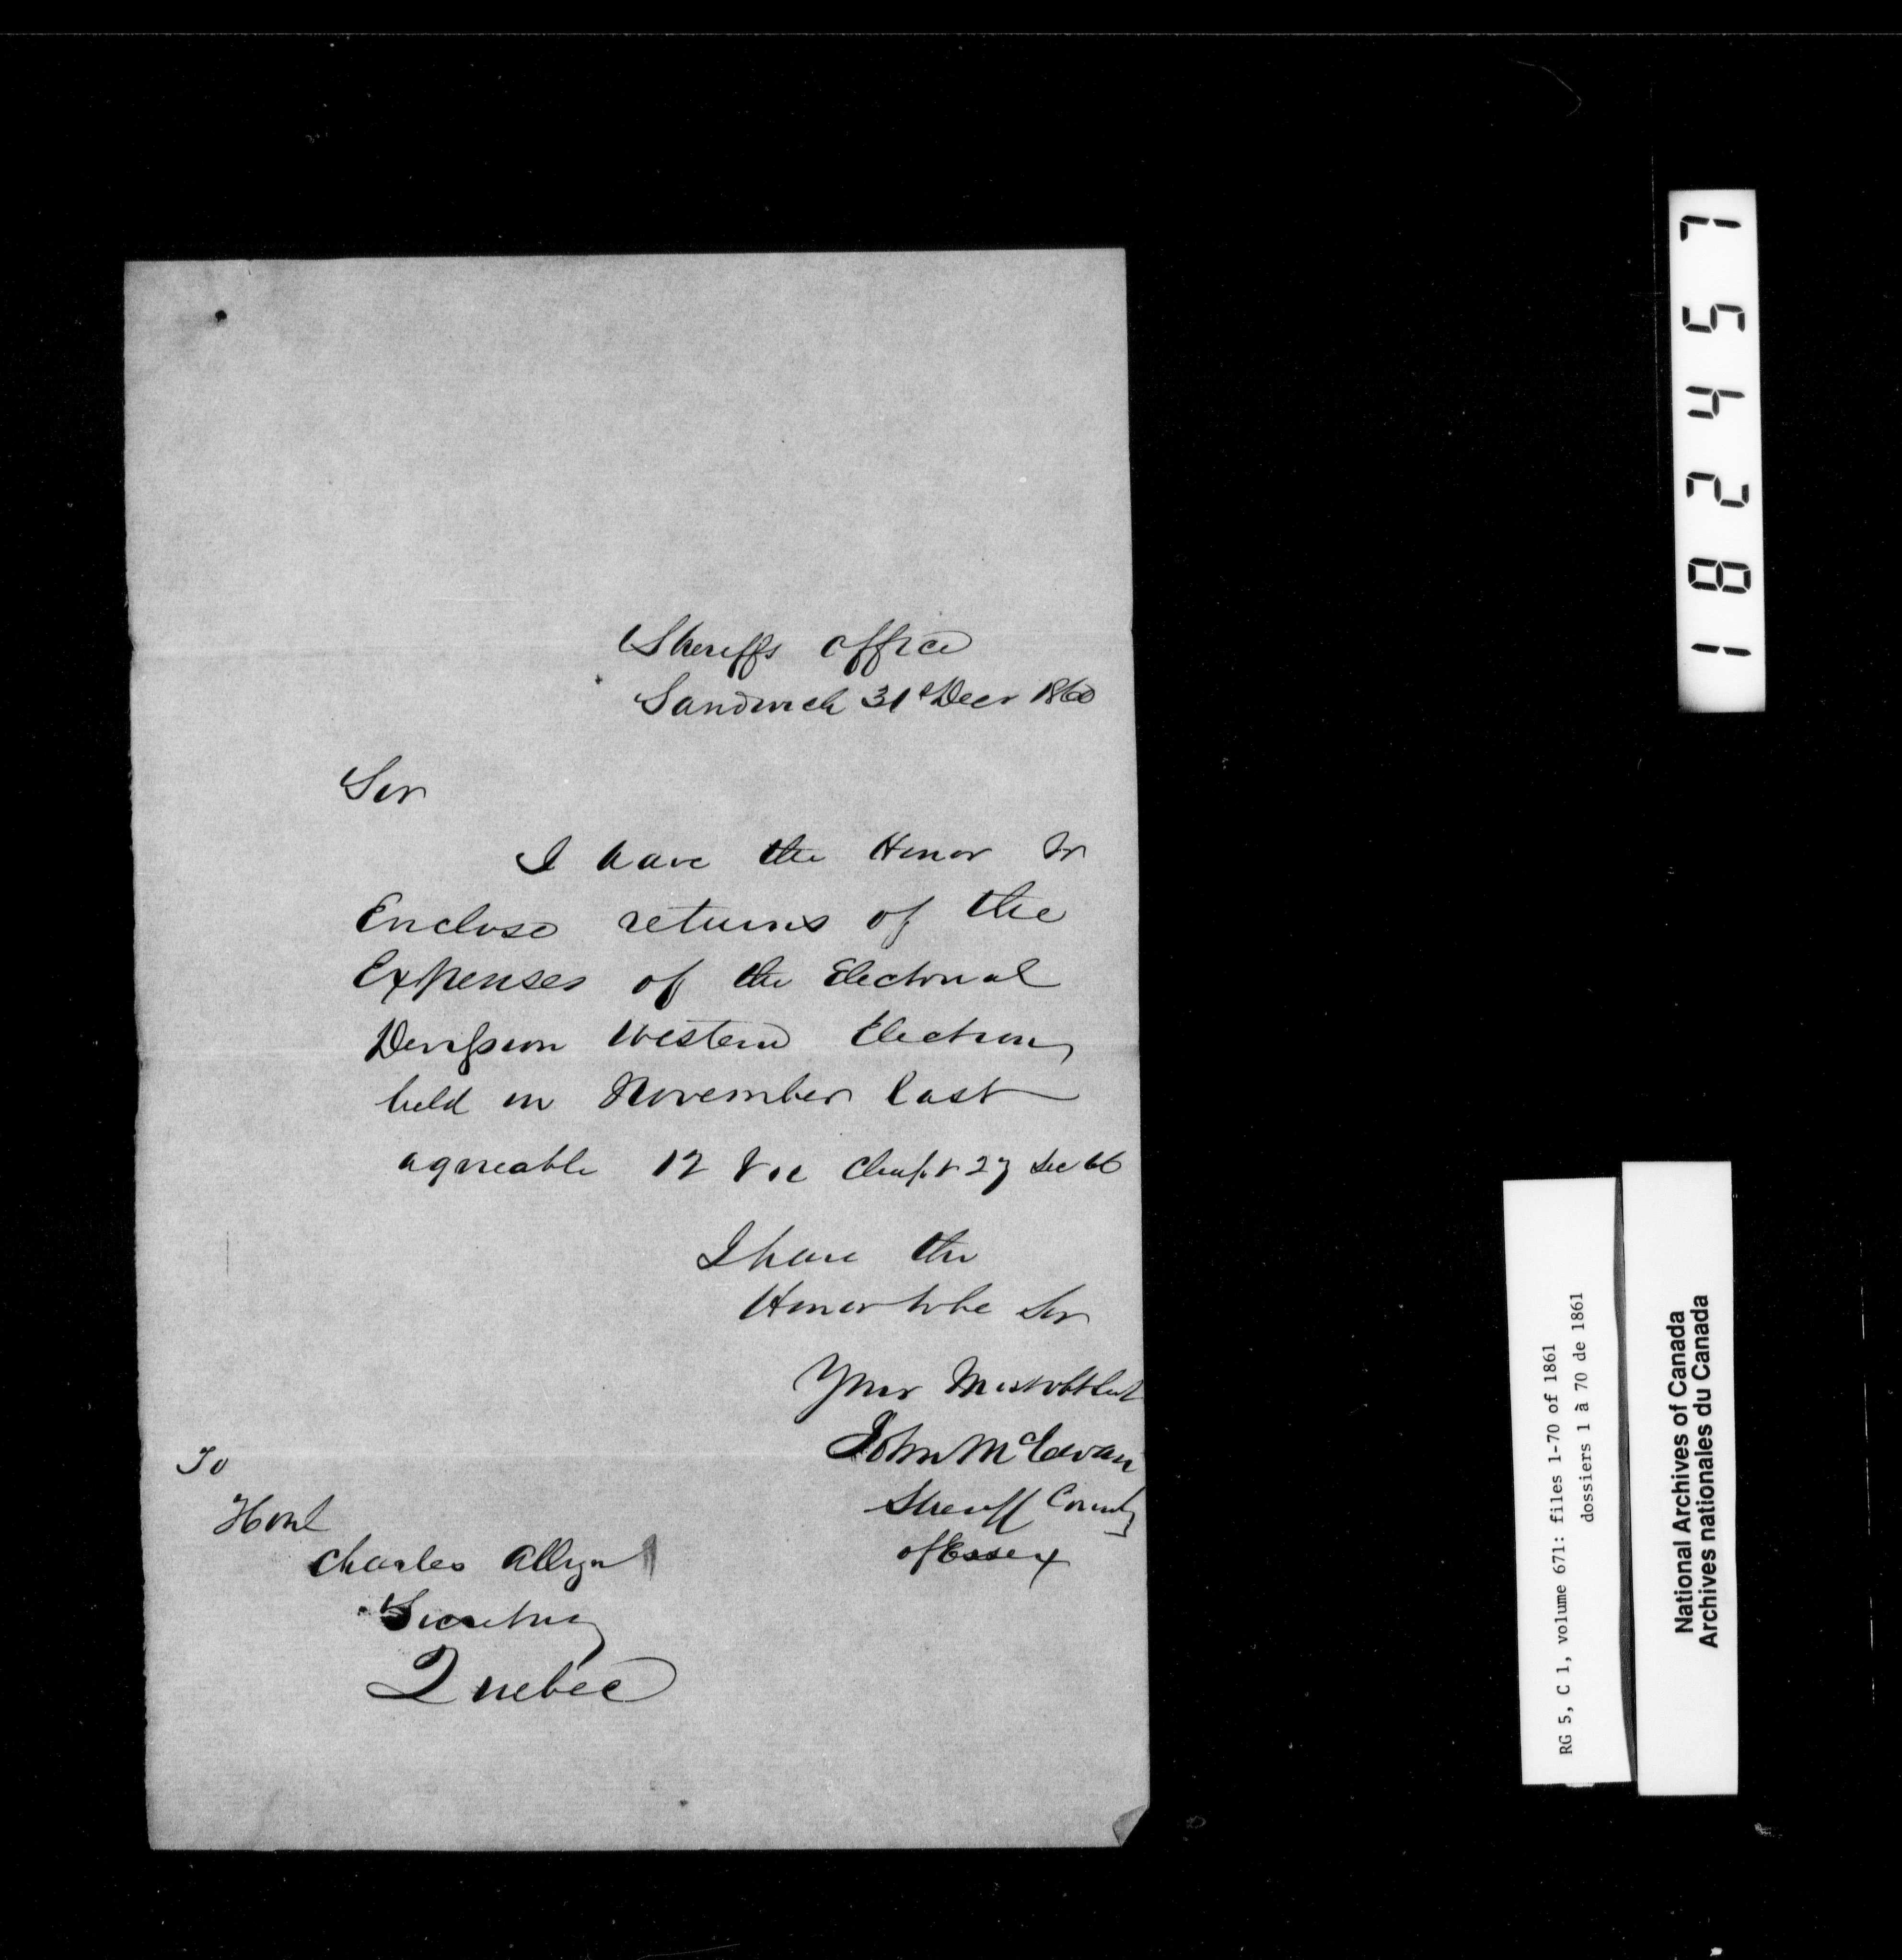 Sheriffs office
Sandwich 31st Decr 1860
Sir
I have the Honor to
Enclose returns of the
Expenses of the Electoral
Division Western Election
held in November last
agreeable 12 Vic Chapt 27 Sec 66
I have the
Honor to be Sir
Your Most obt Sert
John McEwan
Sheriff County
of Essex
To
Honl
Charles Alleyn
Secretary
Quebec
182457
RG 5, C 1, volume 671: files 1-70 of 1861
dossiers 1 à 70 de 1861
National Archives of Canada
Archives nationales du Canada